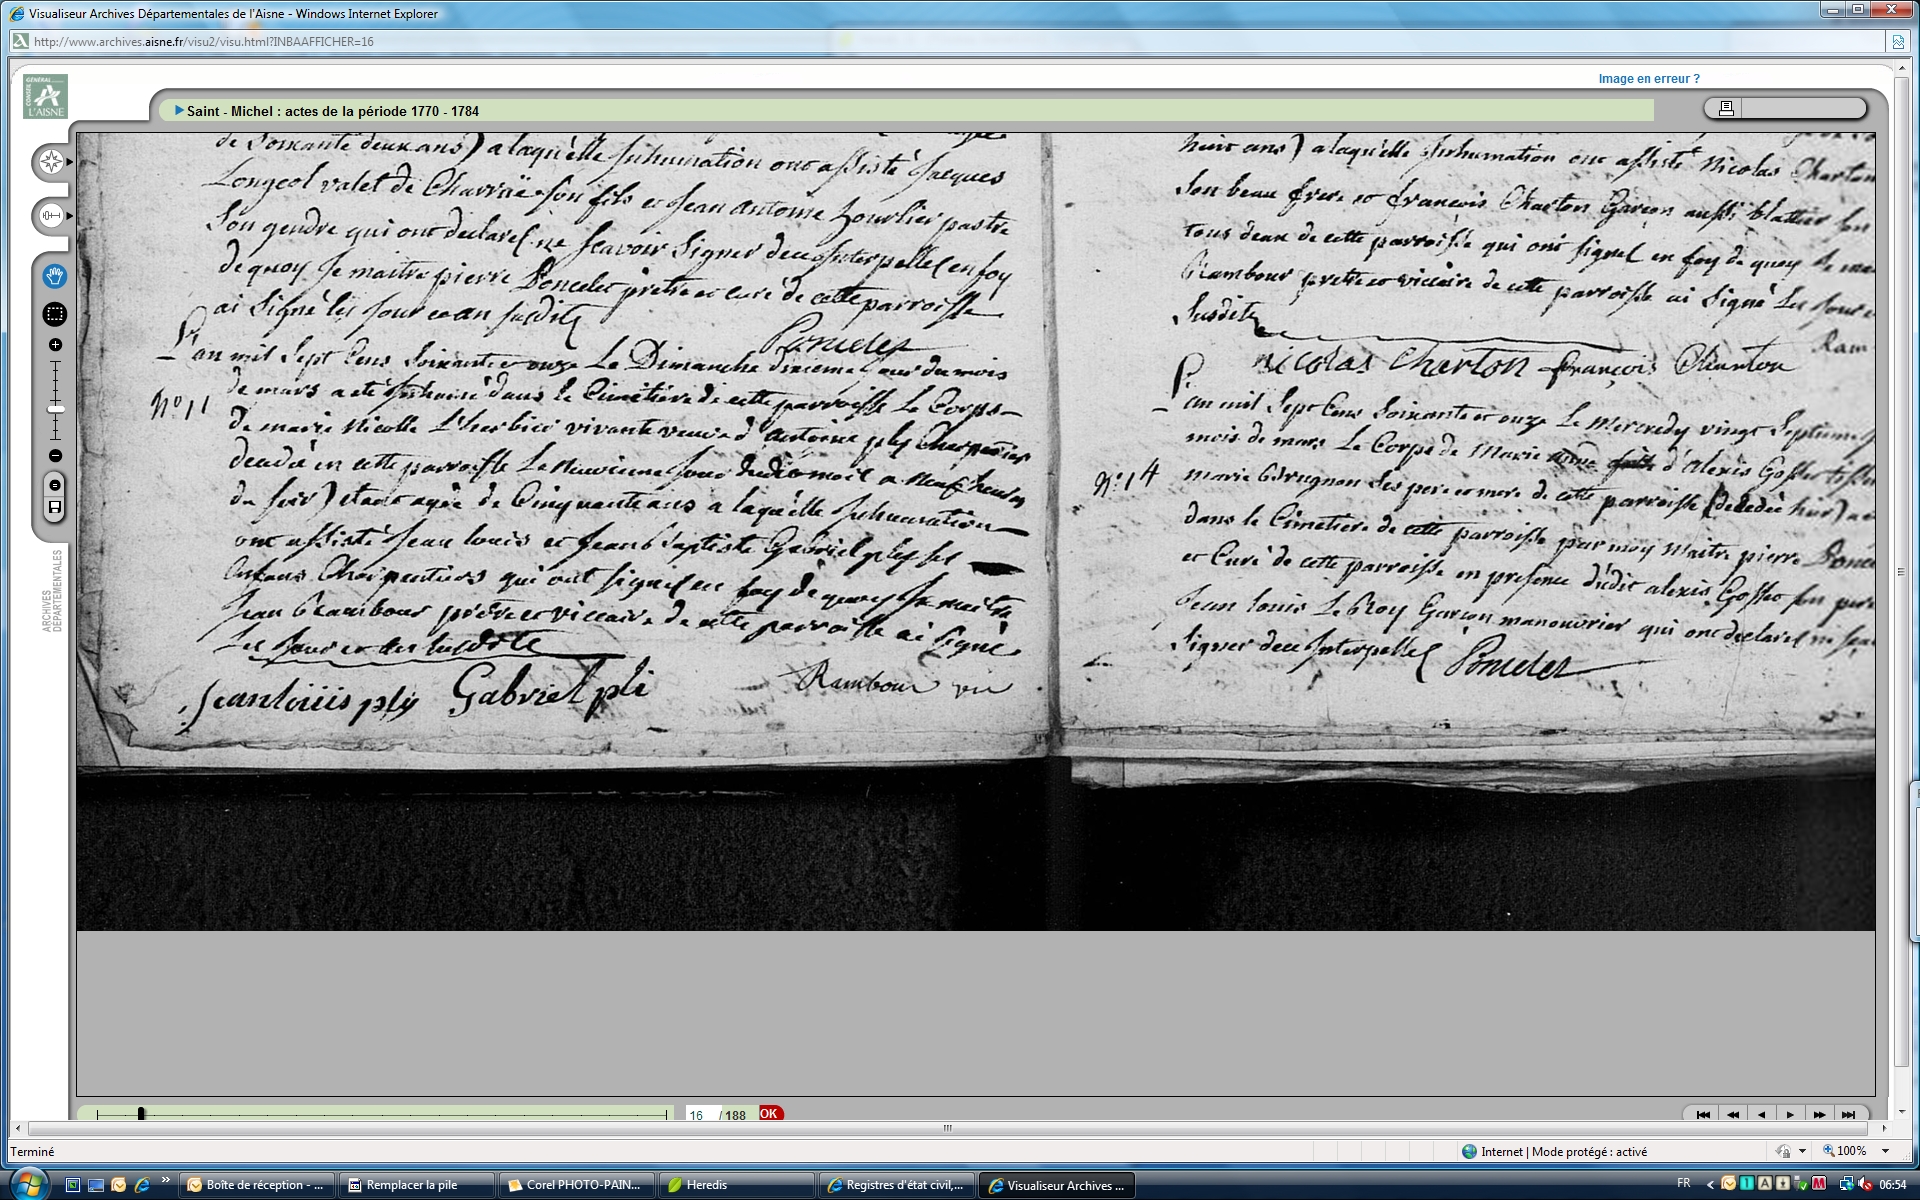 Visualiseur Archives Départementales de l'Aisne - Windows Internet Explorer
http://www.archives.aisne.fr/visu2/visu.html?INBAAFFICHER=16
Image en erreur ?
GÉNÉRAL
CONSEIL
L'AISNE
Saint - Michel : actes de la période 1770 - 1784
ARCHIVES
DÉPARTEMENTALES
de Soixante deux ans) a laquelle Inhumation ont assisté Jacques
Longcol valet de Charruë son fils et Jean antoine hourlier pastre
Son gendre qui ont declarez ne scavoir Signer de ce Interpellez en foy
de quoy Je maitre pierre Poncelet prêtre et curé de cette parroisse
ai Signé les Jour et an susdits
Poncelet
L'an mil Sept Cens Soixante et onze Le Dimanche dixieme Jour du mois
N° 11
de mars a eté Inhumé dans le Cimetiere de cette parroisse Le Corps
de marie Nicolle L'herbier vivante veuve d'antoine ply Charpentier
decedé en cette parroisse Le Neuvieme Jour dudit mois a Neuf heures
du soir) etant agée de Cinquante ans a laquelle Inhumation
ont assisté Jean louis et Jean baptiste Gabriel ply ses
Enfans Charpentiers qui ont signez en foy de quoy Je maitre
Jean Rambour prêtre et viccaire de cette parroisse ai Signé
Les Jour et an susdits
Jean louiis ply Gabriel pli Rambour vic
huit ans) a laquelle Inhumation ont assisté Nicolas Charton
Son beau frere et françois Charton Garçon aussi blattier
tous deux de cette parroisse qui ont signez en foy de quoy Je
Rambour pretre et viccaire de cette parroisse ai Signé Les Jour
Susdits
Ram
Nicolas Charton françois Charton
L'an mil Sept Cens Soixante et onze Le Mercredy vingt Septieme
mois de mars Le Corps de Marie anne fille d'Alexis Gosset
N° 14
marie Ses pere et mere de cette parroisse (decedée hier)
dans le Cimetiere de cette parroisse par moy Maitre pierre Ponce
et Curé de cette parroisse en presence dudit alexis Gosset son pere
Jean louis Le Roy Garçon manouvrier qui ont declarez ne
Signer de ce Interpellez Poncelet
16 / 188 OK
Terminé
Internet | Mode protégé : activé
100%
Boîte de réception - ...
Remplacer la pile
Corel PHOTO-PAIN...
Heredis
Registres d'état civil,...
Visualiseur Archives ...
FR
06:54